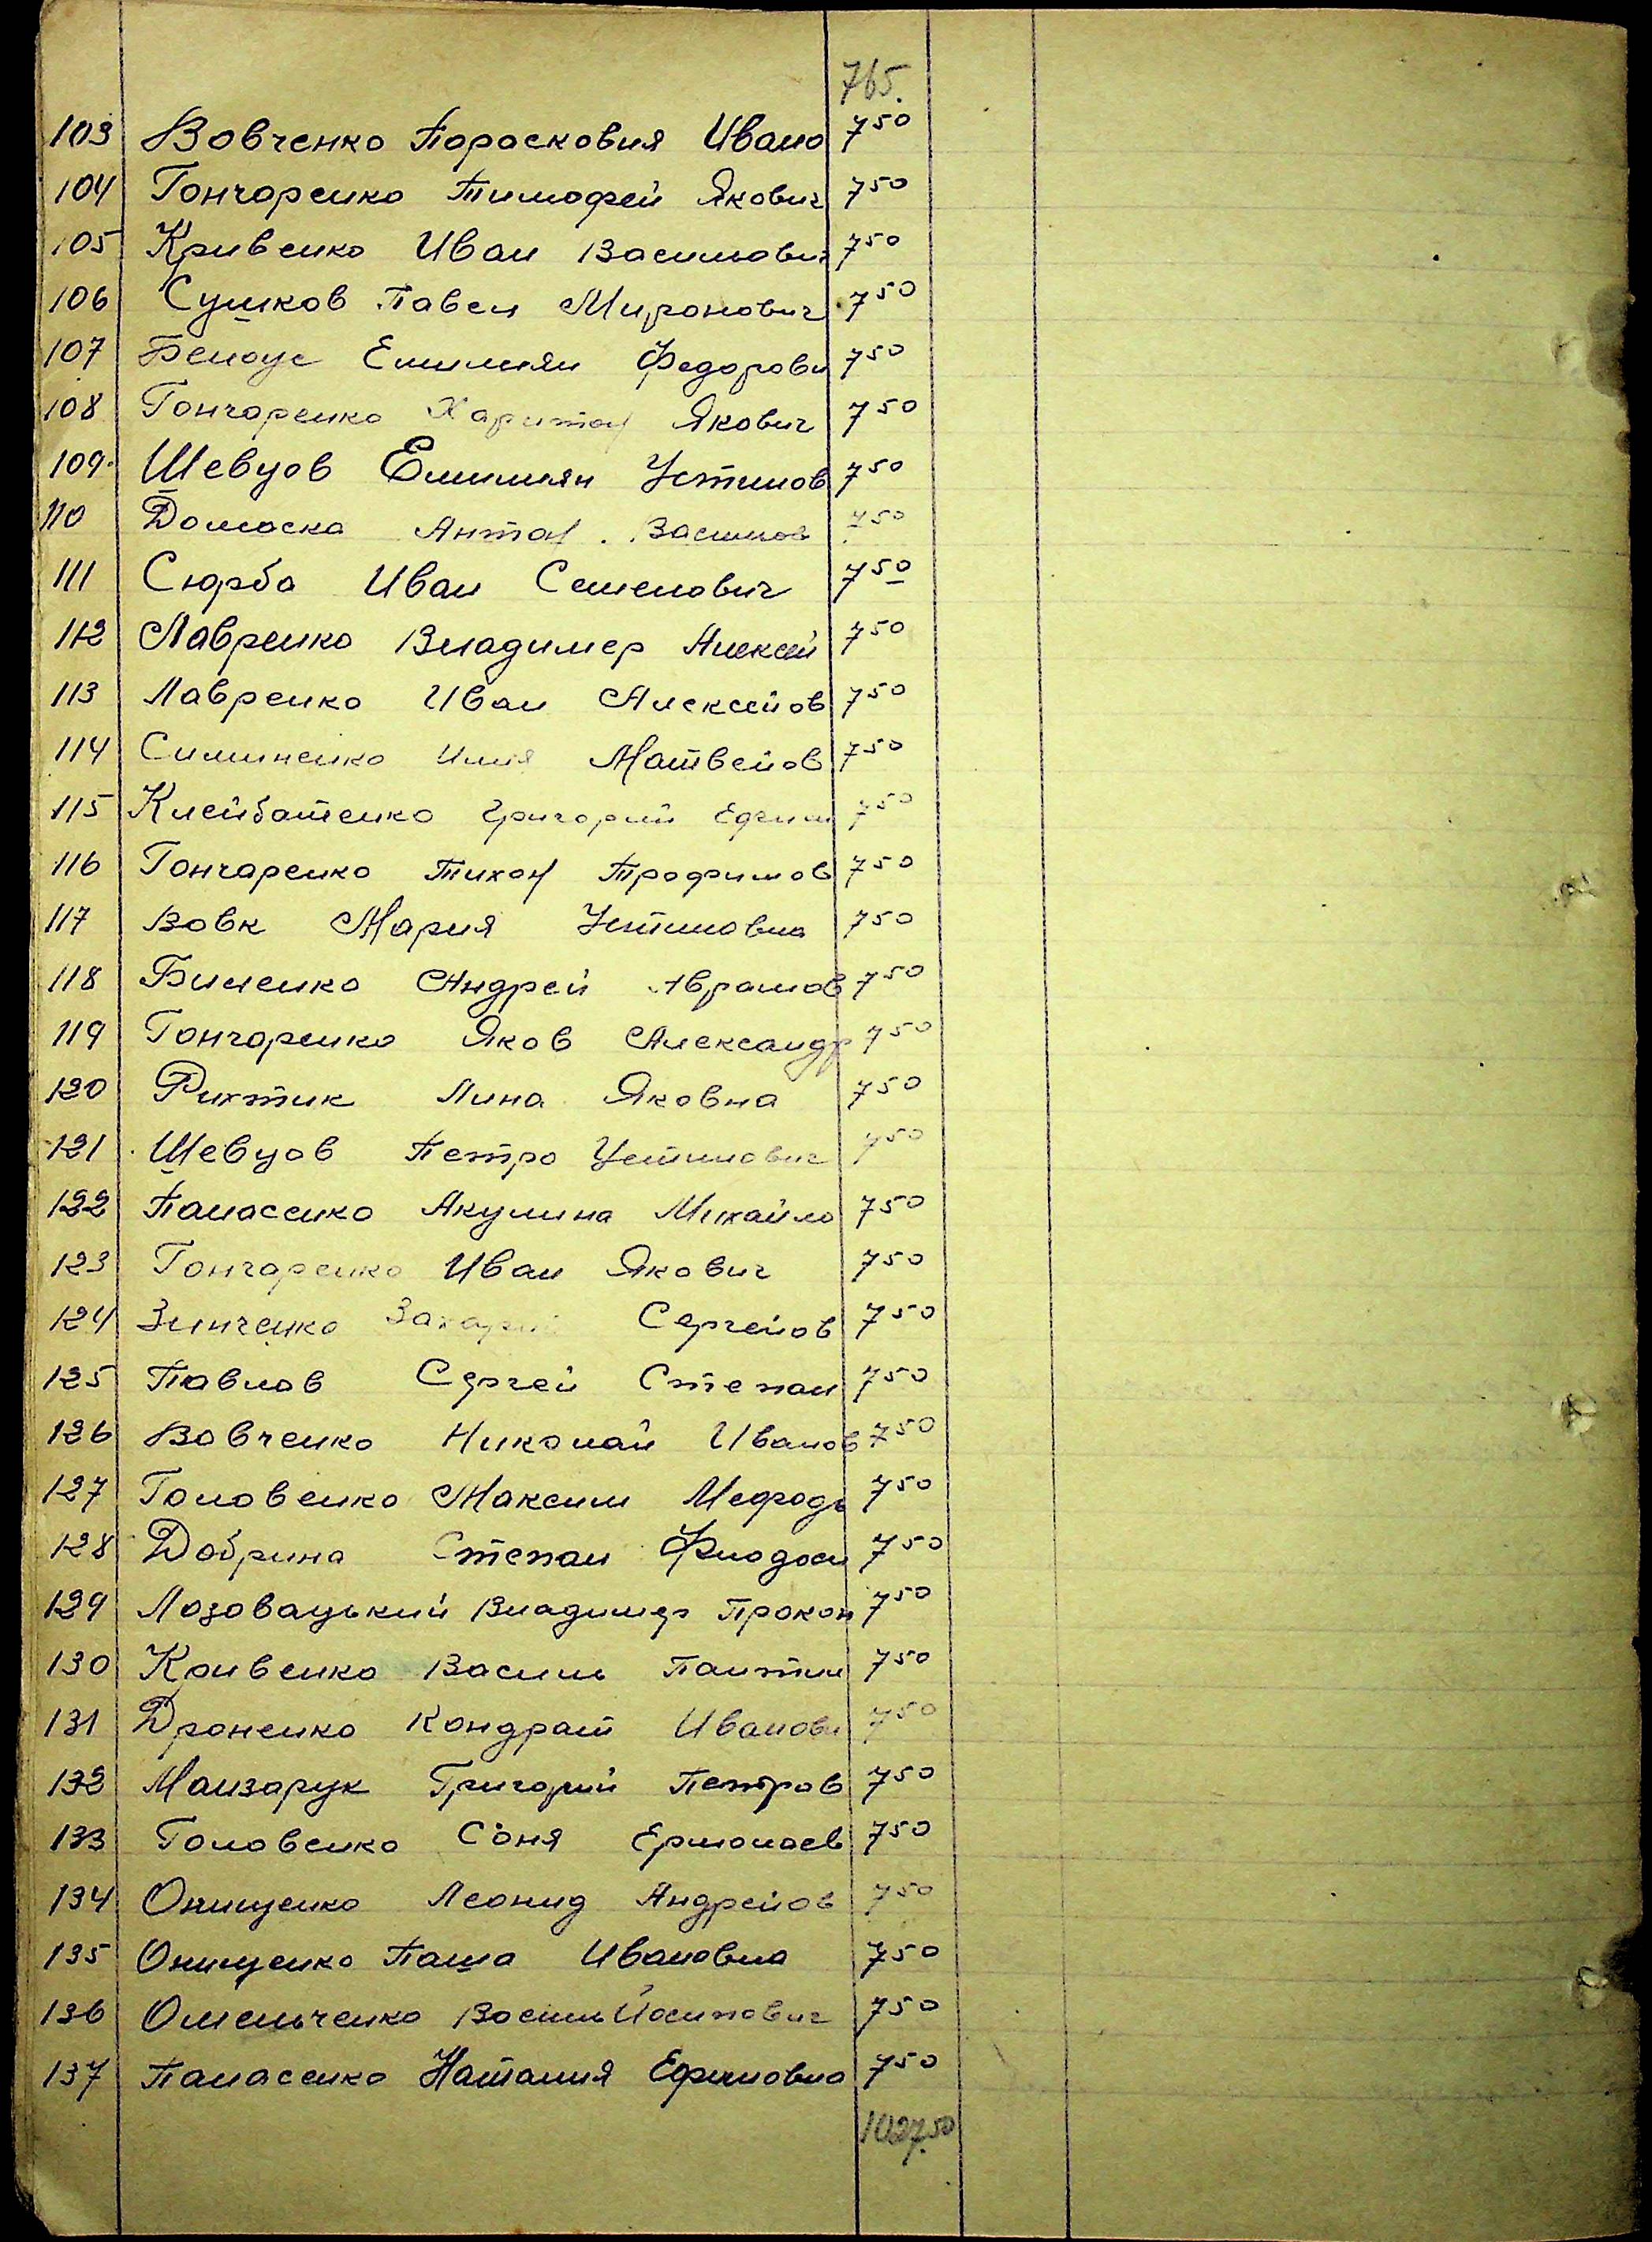 765.
103 Вовченко Порасковия Ивано 7 50
104 Гончаренко Тимофей Якович 7 50
105 Кривенко Иван Василович 7 50
106 Сушков Павел Миронович 7 50
107 Белоус Емилиян Федорови 7 50
108 Гончаренко Харитон Якович 7 50
109 Шевцов Емилиян Устимов 7 50
110 Домаска Антон Василов 7 50
111 Сюрба Иван Семенович 7 50
112 Лавренко Владимер Алексей 7 50
113 Лавренко Иван Алексейов 7 50
114 Симиненко Илия Матвейов 7 50
115 Клейбатенко Григорий Ефим 7 50
116 Гончаренко Тихон Трофимов 7 50
117 Вовк Мария Устиновна 7 50
118 Биленко Андрей Аврамов 7 50
119 Гончаренко Яков Александр 7 50
120 Рихтик Лина Яковна 7 50
121 Шевцов Петро Устинович 7 50
122 Панасенко Акулина Михайло 7 50
123 Гончаренко Иван Якович 7 50
124 Зинченко Захарий Сергейов 7 50
125 Павлов Сергей Степан 7 50
126 Вовченко Николай Иванов 7 50
127 Головенко Максим Мефодь 7 50
128 Добрина Степан Фиодоси 7 50
129 Лозовацький Владимер Прокоп 7 50
130 Кривенко Василь Пантим 7 50
131 Дроненко Кондрат Иванови 7 50
132 Манзарук Григорий Петров 7 50
133 Головенко Соня Ермолаев 7 50
134 Онищенко Леонид Андрейов 7 50
135 Онищенко Паша Ивановна 7 50
136 Омельченко Василь Йосипович 7 50
137 Панасенко Наталия Ефимовна 7 50
1027.50